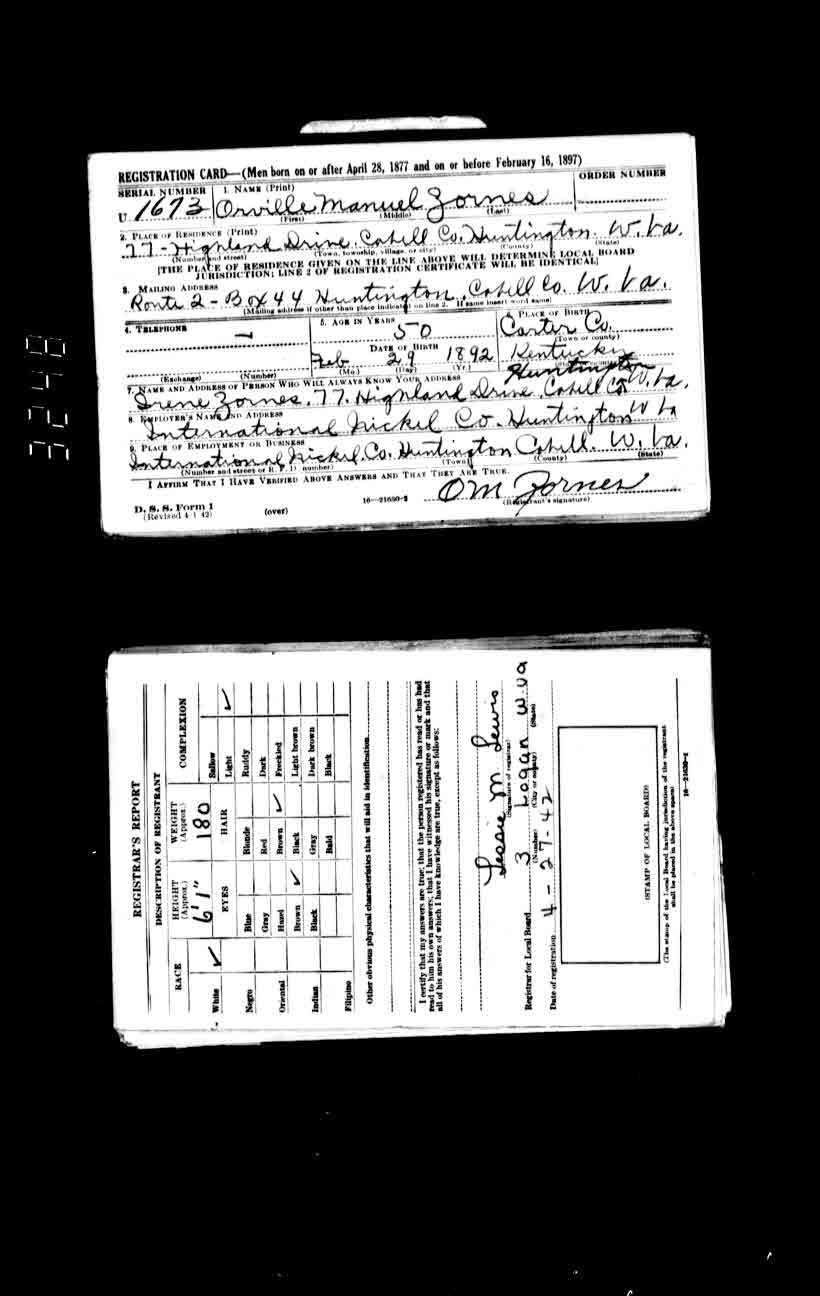 REGISTRATION CARD—(Men born on or after April 28, 1877 and on or before February 16, 1897)
SERIAL NUMBER 1. NAME (Print) ORDER NUMBER
U 1673 Orville Manuel Zornes
(First) (Middle) (Last)
2. PLACE OF RESIDENCE (Print)
77 - Highland Drive. Cabell Co. Huntington. W. Va.
(Number and street) (Town, township, village, or city) (County) (State)
[THE PLACE OF RESIDENCE GIVEN ON THE LINE ABOVE WILL DETERMINE LOCAL BOARD
JURISDICTION; LINE 2 OF REGISTRATION CERTIFICATE WILL BE IDENTICAL]
3. MAILING ADDRESS
Route 2 - Box 44 Huntington, Cabell Co. W. Va.
(Mailing address if other than place indicated on line 2. If same insert word same)
4. TELEPHONE 5. AGE IN YEARS 6. PLACE OF BIRTH
50 Carter Co.
(Town or county)
DATE OF BIRTH
Feb 29 1892 Kentucky
(Exchange) (Number) (Mo.) (Day) (Yr.)
Huntington
7. NAME AND ADDRESS OF PERSON WHO WILL ALWAYS KNOW YOUR ADDRESS
Irene Zornes, 77. Highland Drive, Cabell Co W. Va.
8. EMPLOYER'S NAME AND ADDRESS
International Nickel Co. Huntington W Va
9. PLACE OF EMPLOYMENT OR BUSINESS
International Nickel. Co. Huntington Cabell. W. Va.
(Number and street or R. F. D. number) (Town) (County) (State)
I AFFIRM THAT I HAVE VERIFIED ABOVE ANSWERS AND THAT THEY ARE TRUE.
OM Zornes
D. S. S. Form 1 16—21630-2 (Registrant's signature)
(Revised 4-1-42) (over)
3248
REGISTRAR'S REPORT
DESCRIPTION OF REGISTRANT
RACE HEIGHT (Approx.) WEIGHT (Approx.) COMPLEXION
6'1" 180
White ✓ EYES HAIR Sallow
Light ✓
Negro Blue Blonde Ruddy
Gray Red Dark
Oriental Hazel Brown ✓ Freckled
Brown ✓ Black Light brown
Indian Black Gray Dark brown
Filipino Bald Black
Other obvious physical characteristics that will aid in identification
I certify that my answers are true; that the person registered has read or has had
read to him his own answers; that I have witnessed his signature or mark and that
all of his answers of which I have knowledge are true, except as follows:
Lessie M Lewis
(Signature of registrar)
Registrar for Local Board 3 Logan W. Va
(Number) (City or county) (State)
Date of registration 4 - 27 - 42
(STAMP OF LOCAL BOARD)
(The stamp of the Local Board having jurisdiction of the registrant
shall be placed in the above space)
16—21630-1